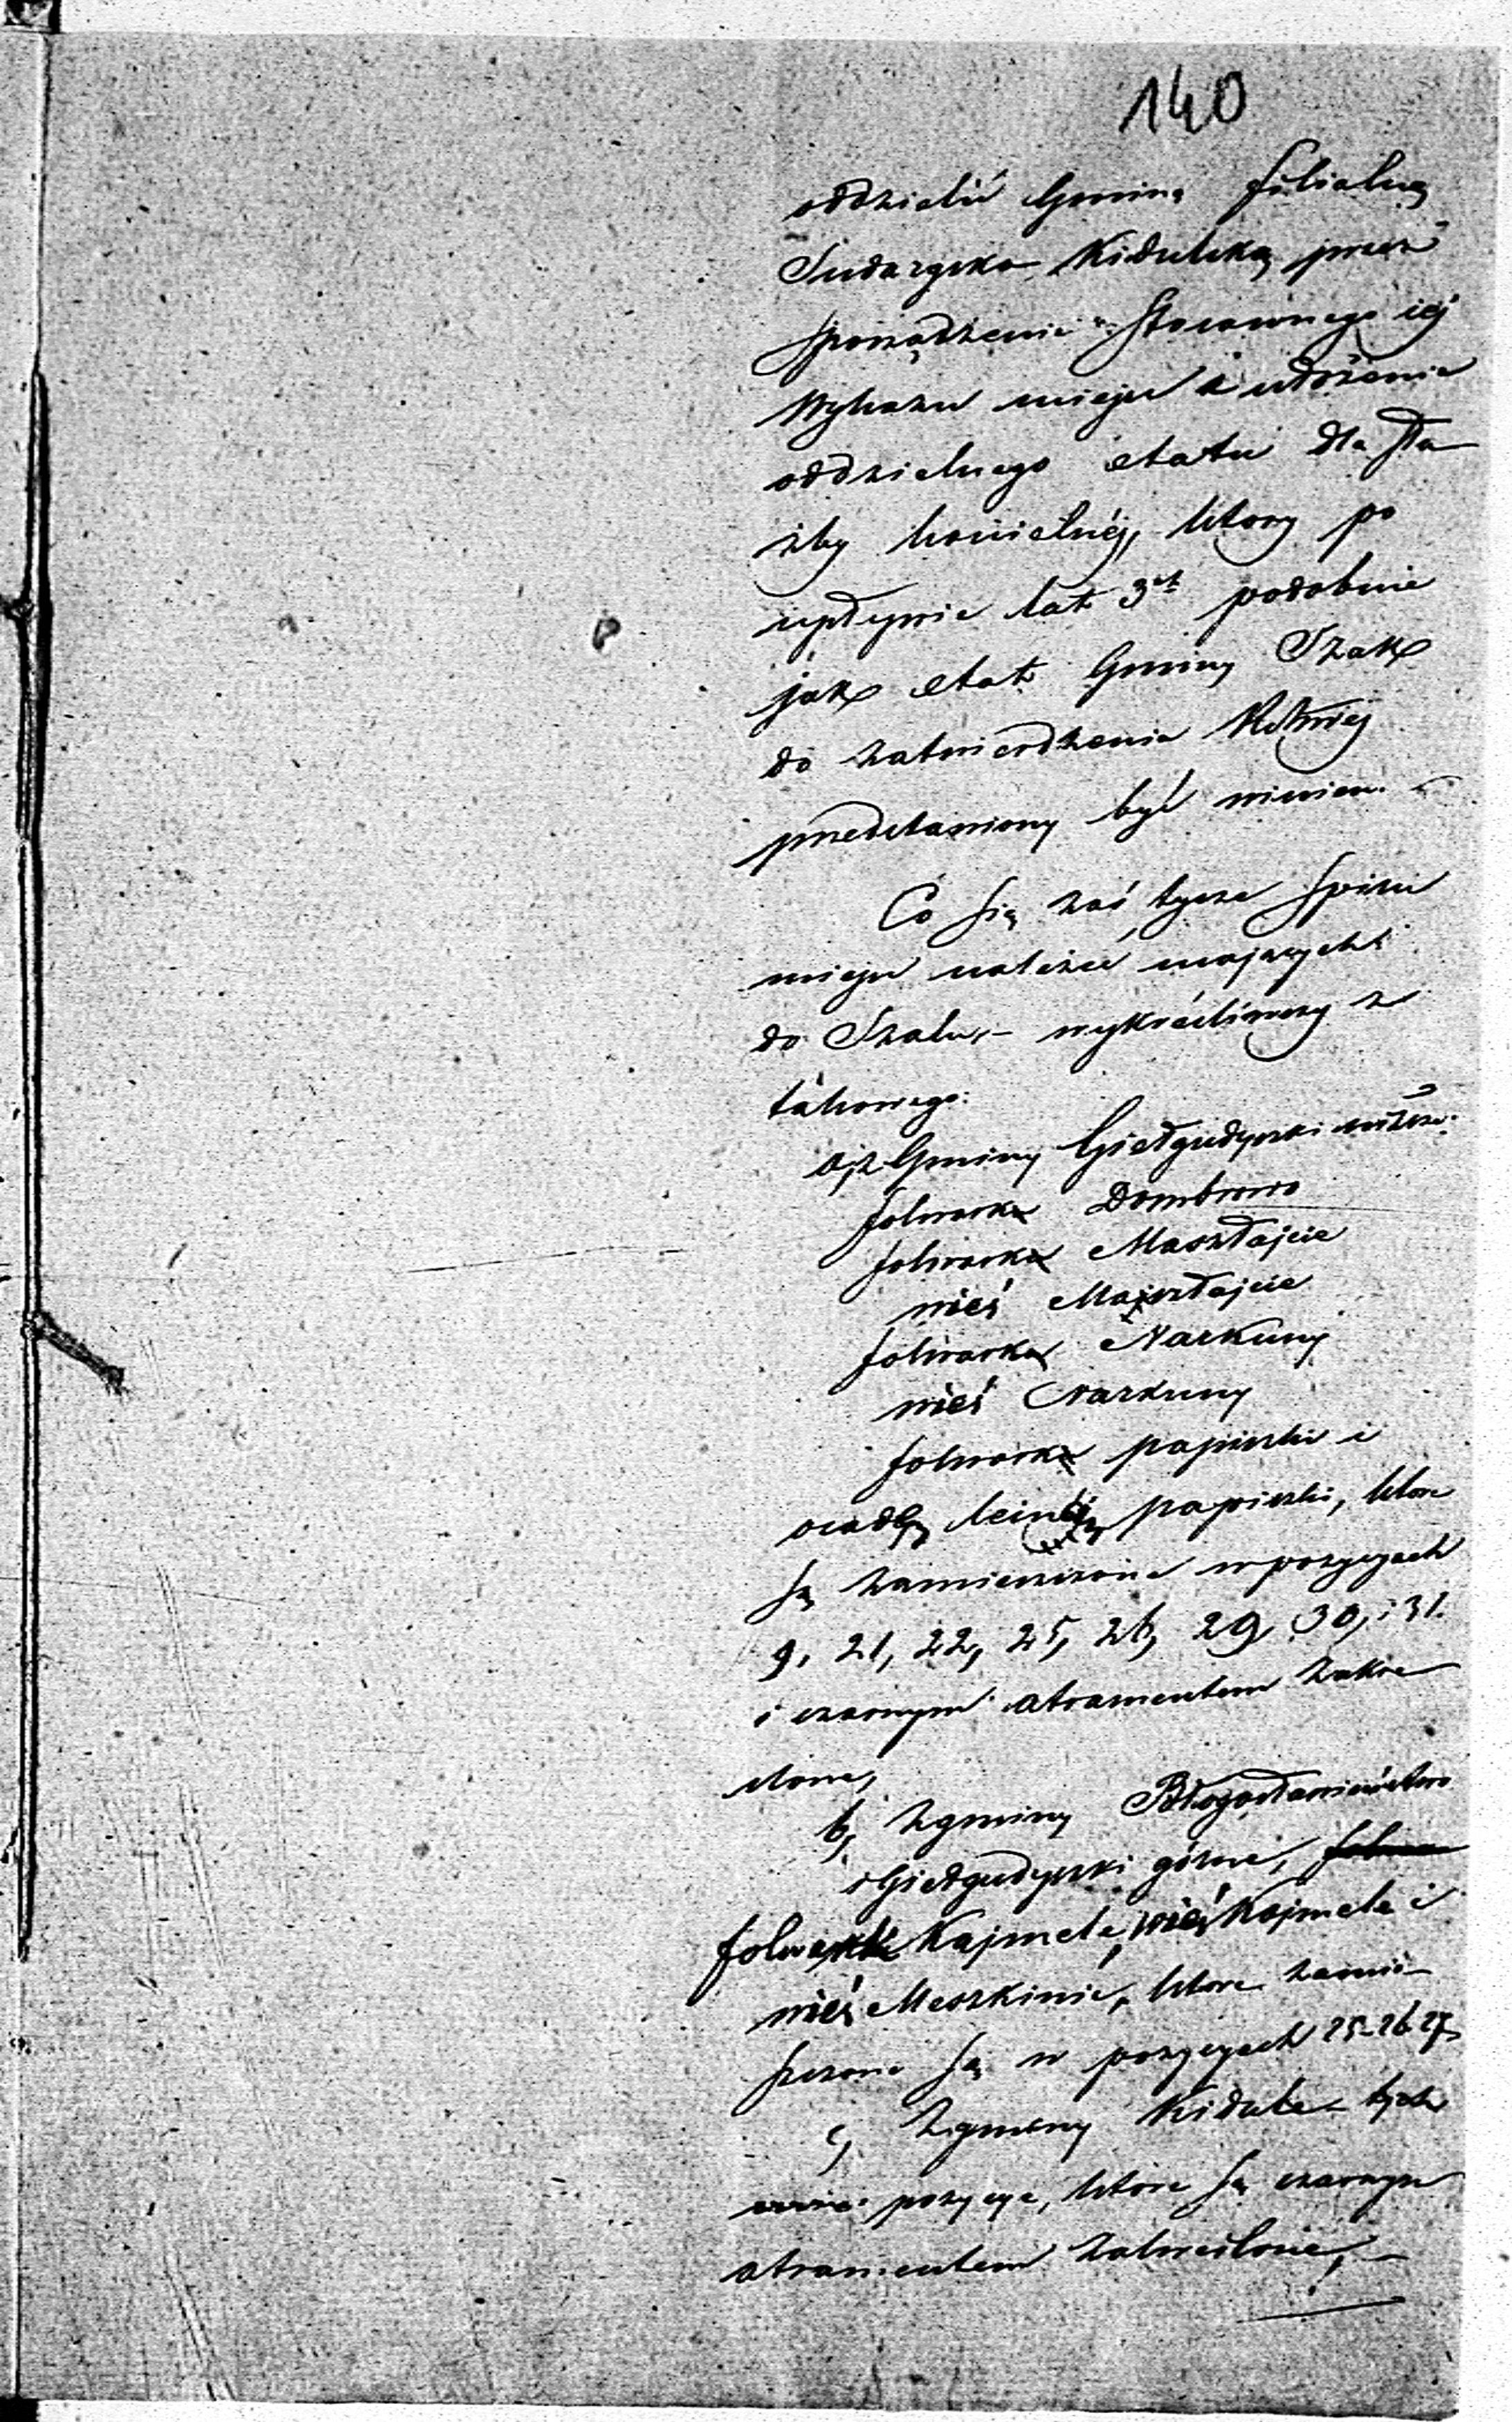 140
oddzielić Gminę filialną
Sudargsko Kidulską przez
sporządzenie stosownego iéj
Wykazu miejsc i ułożenie
oddzielnego etatu dla słu
żby kościelnéj, który po
upływie lat 3ch podobnie
jak etat Gminy Szak
do zatwierdzenia
przedstawiony być winien. –
Co się zaś tycze spisu
miejsc należeć mających
do Szak, – wykreśliwszy z
takowego:
a, z Gminy Giełgudyszki niższe:
folwark Dombrowo
folwark Masztajcie
wieś Masztajcie
folwark Narkuny
wieś Narkuny
folwark papiszki i
osadę papiszki, które
są zamieszczone w pozycyach
9, 21, 22, 25, 26, 29, 30, i 31.
i czarnym atramentem zakre
slone,
b, z gminy Błogosławieństwo
i Giełgudyszki górne, folwa
folwark Kajmele, wieś Kajmele i
wieś Meszkinie, które zamie-
szczone są w pozycyach 25-26-27
c, z gminy Kidule – tych
pozycye, które są czarnym
atramentem zakreślone, –